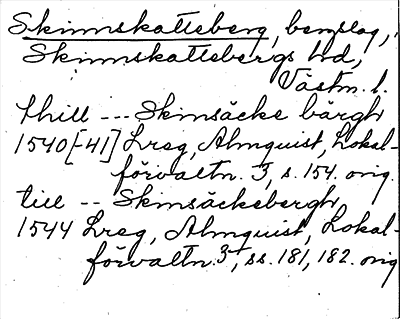 Skinnskatteberg, bergslag,
Skinnskattebergs hd,
Västm. l.
thill --- Skinsäcke bärgh
1540[-41] Lreg, Almquist, Lokal-
förvaltn. 3, s. 154. orig.
till -- Skinsäckebergh,
1544 Lreg, Almquist, Lokal-
förvaltn. 3, ss. 181, 182. orig